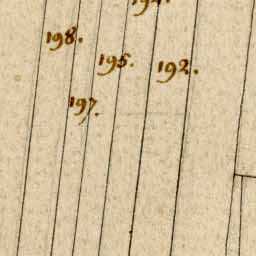 198.
195.
192.
197.